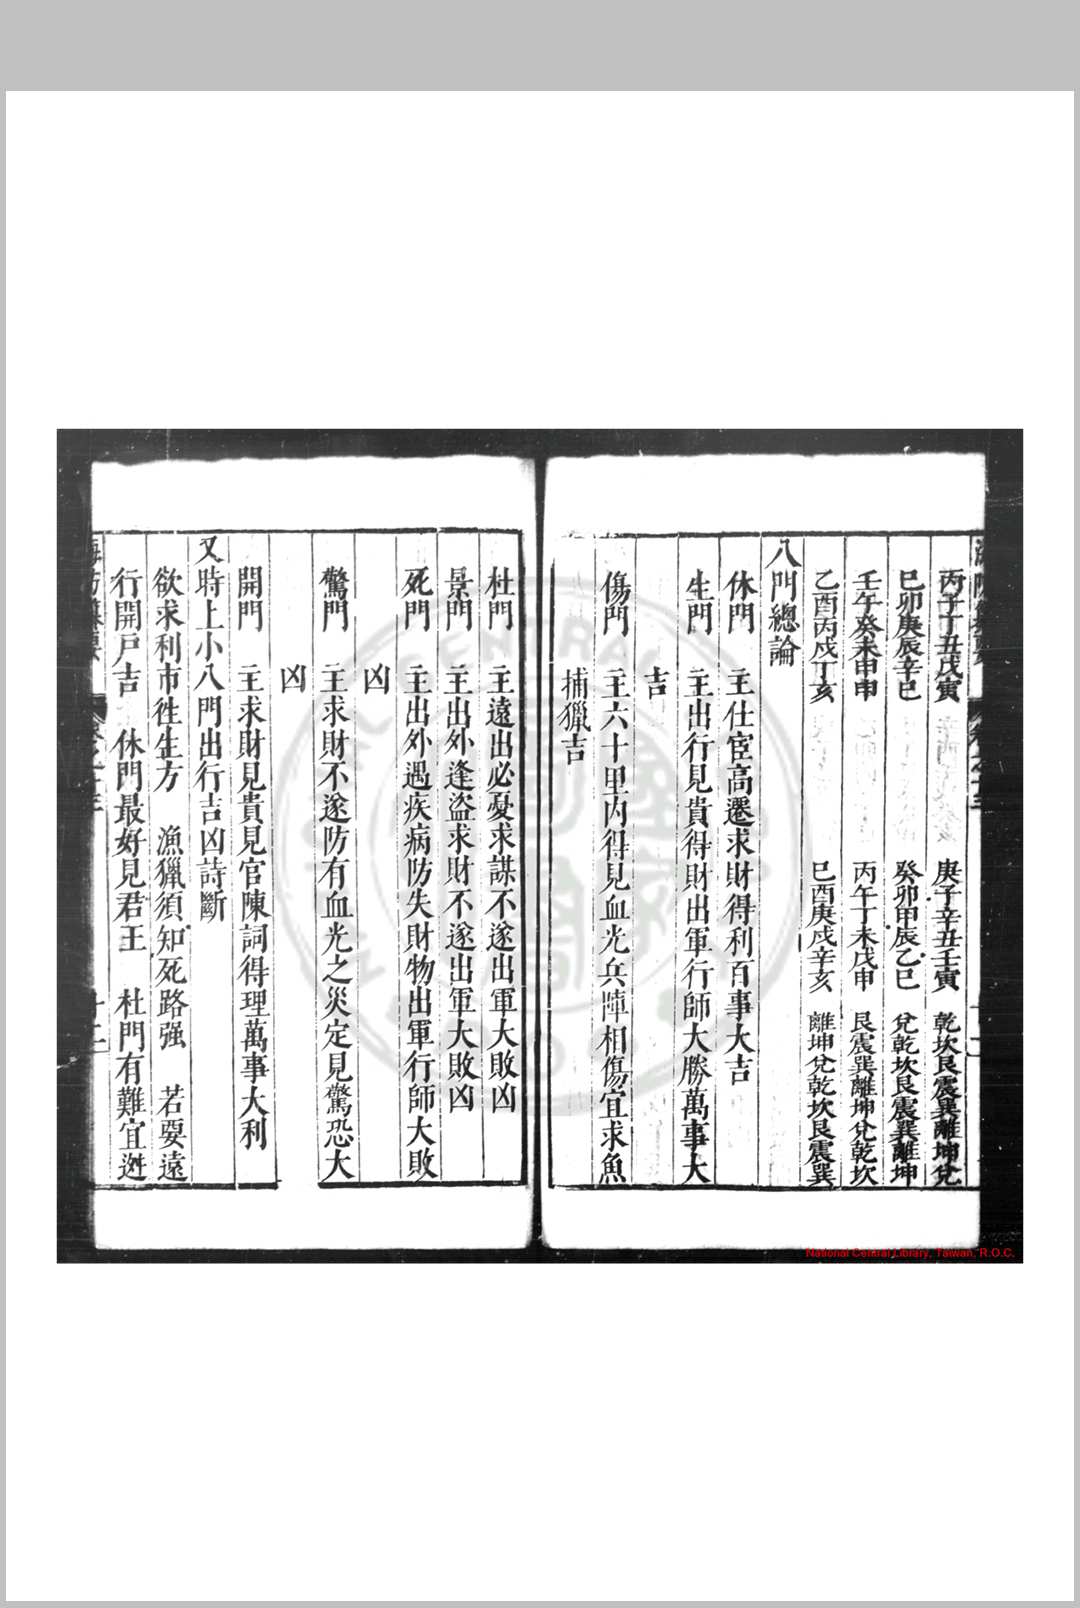 丙子丁丑戊寅　庚子辛丑壬寅　乾坎艮震巽離坤兌
己卯庚辰辛巳　癸卯甲辰乙巳　兌乾坎艮震巽離坤
壬午癸未申申　丙午丁未戊申　艮震巽離坤兌乾坎
乙酉丙戌丁亥　己酉庚戌辛亥　離坤兌乾坎艮震巽
八門總論
休門　主仕宦高遷求財得利百事大吉
生門　主出行見貴得財出軍行師大勝萬事大
吉
傷門　主六十里内得見血光兵陣相傷宜求魚
捕獵吉
杜門　主遠出必憂求謀不遂出軍大敗凶
景門　主出外逢盜求財不遂出軍大敗凶
死門　主出外遇疾病防失財物出軍行師大敗
凶
驚門　主求財不遂防有血光之災定見驚恐大
凶
開門　主求財見貴見官陳詞得理萬事大利
又時上小八門出行吉凶詩斷
欲求利市徃生方　漁獵須知死路强　若要遠
行開戸吉　休門最好見君王　杜門有難宜迯
National Central Library, Taiwan, R.O.C.